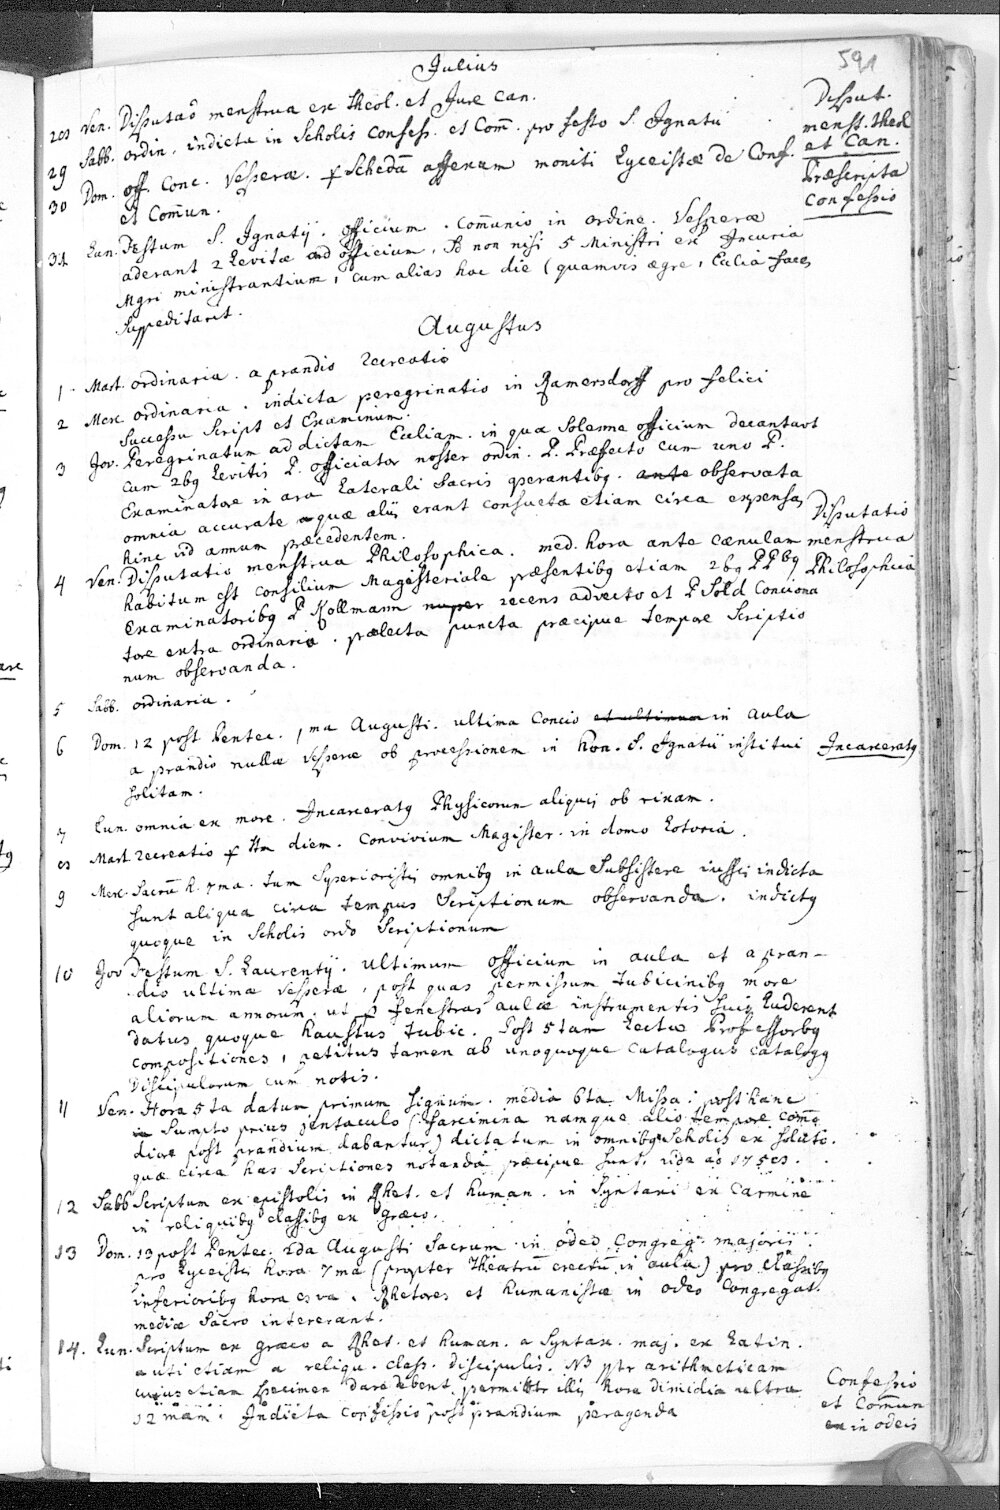 591
Julius
28 Ven. Disputaõ menstrua ex Theol. et Jure Can.
Disput.
menst. theol
et Can.
29 Sabb. ordin. indicta in Scholis Confess. et Com̃. pro festo S. Ignatii
30 Dom. off. Conc. Vesperæ. p Schedã affixam moniti Lyceistæ de Conf.
et Com̃un.
Præscripta
Confessio
31 Lun. Festum S. Ignatij. officium. Com̃unio in ordine. Vesperæ
aderant 2 Levitæ ad officium, sed non nisi 5 Ministri ex Incuria
Mgri ministrantium, cum alias hac die (quamvis ægre, Ecclia
suppeditarit.
Augustus
1 Mart. ordinaria. a prandio Recreatio
2 Merc. ordinaria. indicta peregrinatio in Ramersdorff pro felici
Successu Script et Examinum.
3 Jov. Peregrinatum ad dictam Eccliam. in qua Solenne officium decantavit
cum 2bq Levitis P. officiator noster ordin. P. Præfecto cum uno P.
Examinatore in ara Laterali Sacris operantibq. ante observata
omnia accurate quæ aliis erant consueta etiam circa expensas
hinc vid annum præcedentem.
4 Ven. Disputatio menstrua Philosophica. med. hora ante cænulam
habitum est consilium Magisteriale præsentibq etiam 2bq PPbq
Examinatoribq P. Kollmann nuper recens advecto et P. Sold Conciona
tore extra ordinario. prælecta puncta præcipue tempore Scriptio
num observanda.
Disputatio
menstrua
Philosophica
5 Sabb. ordinaria.
6 Dom. 12 post Pentec. 1ma Augusti. ultima Concio et ultimum in aula
a prandio nullæ Vesperæ ob processionem in hon. S. Ignatii institui
solitam.
Incarceratq
7 Lun. omnia ex more. Incarceratq Physicorum aliquis ob rixam.
8 Mart. recreatio p ttm diem. Convivium Magister. in domo Lotoria.
9 Merc. Sacrũ h. 7ma. tum Superioristis omnibq in aula Subsistere iussis indicta
sunt aliqua circa tempus Scriptionum observanda. indictq
quoque in Scholis ordo Scriptionum
10 Jov Festum S. Laurentij. Ultimum officium in aula et a pran-
dio ultimæ Vesperæ, post quas permissum tubicinibq more
aliorum annorum. ut p fenestras aulæ instrumentis suis Luderent
datus quoque haustus tubic. Post 5tam Lectæ Professorbq
compositiones, petitus tamen ab unoquoque catalogus catalogq
Discipulorum cum notis.
11 Ven. Hora 5ta datum primum signum. media 6ta Missa: post hanc
in sumpto prius jentaculo (farcimina namque alio tempore com̃o
diore post prandium dabantur) dictatum in omnibq Scholis ex soluto.
quæ circa has Scriptiones notanda præcipue sunt, vide aõ 1758.
12 Sabb Scriptum ex epistolis in Rhet. et human. in Syntaxi ex Carmine
in reliquibq classibq ex græco.
13 Dom. 13 post Pentec. 2da Augusti Sacrum in odeo Congreg. majoris
pro Lyceistis hora 7ma (propter theatrũ erectũ in aula) pro classibq
inferioribq hora 8va. Rhetores et humanistæ in odeo Congregat.
mediæ Sacro intererant.
14. Lun. Scriptum ex græco a Rhet. et human. a Syntax. maj. ex Latin.
a uti etiam a reliqu. class. discipulis. NB ptr arithmeticam
cuius etiam specimen dare debent permittitr illis hora dimidia ultra
12mam. Indicta confessio post prandium peragenda
Confessio
et Com̃un
in odeis